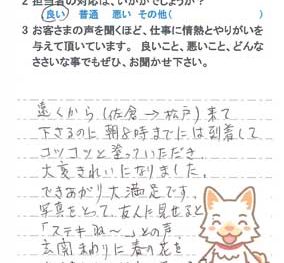 2 担当者の対応は、いかがでしょうか？
良い 普通 悪い その他( )
3 お客さまの声を聞くほど、仕事に情熱とやりがいを
与えて頂いています。良いこと、悪いこと、どんな
ささいな事でもぜひ、お聞かせ下さい。
遠くから(佐倉→松戸)来て
下さるのに朝8時までには到着して
コツコツと塗っていただき
大変きれいになりました。
できあがり大満足です。
写真をとって、友人に見せると
「ステキね〜」との声。
玄関まわりに春の花を